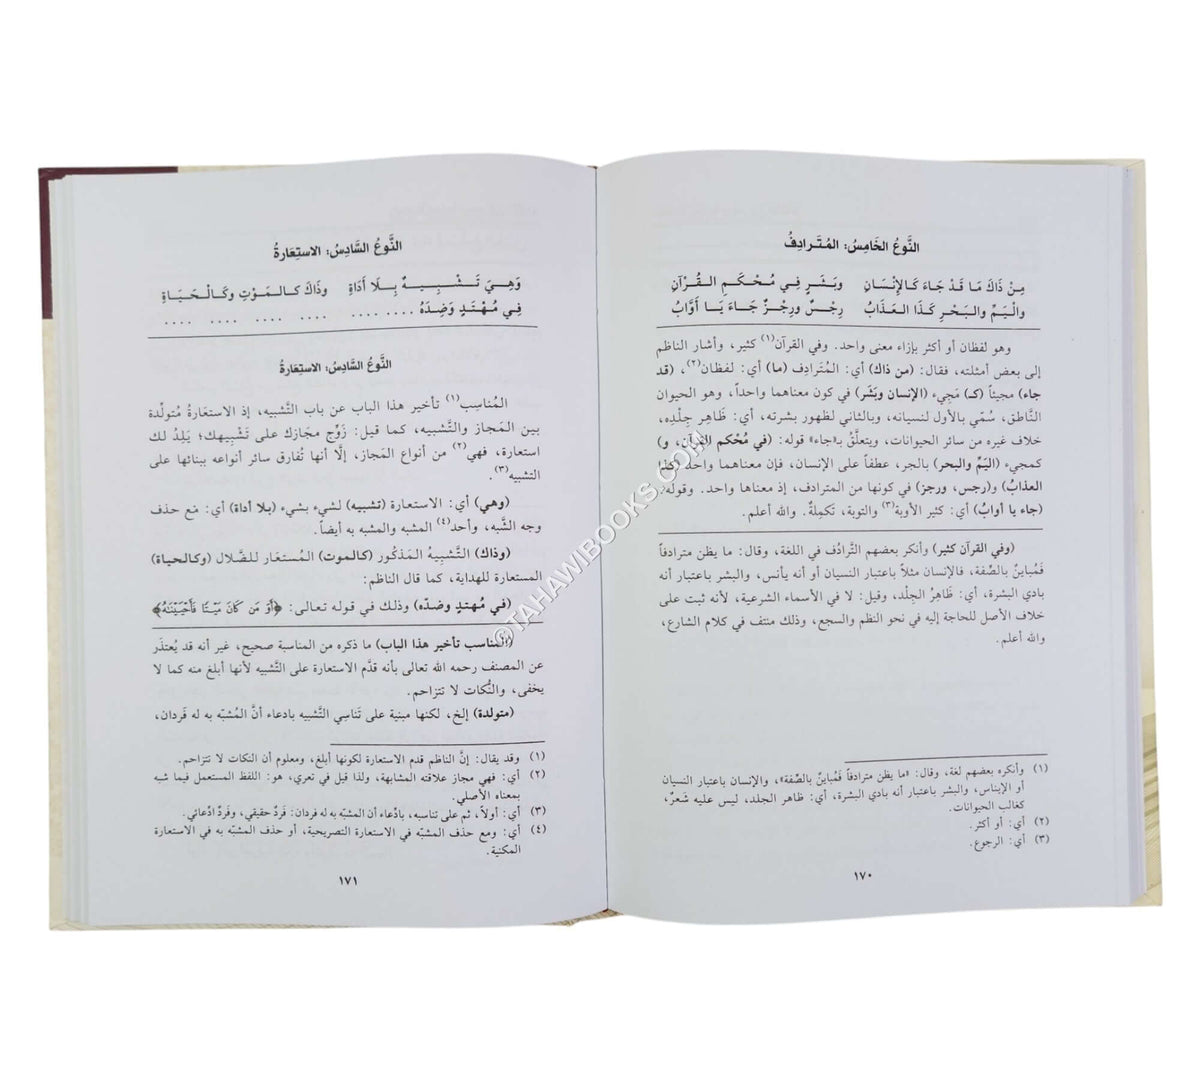 النَّوعُ الخَامِسُ: المُتَرادِفُ
مِنْ ذَاكَ مَا قَدْ جَاءَ كَالإنْسَانِ وبَشَرٍ فِي مُحْكَمِ القُرْآنِ
والْيَمِّ والبَحْرِ كَذَا العَذَابُ رِجْسٌ ورِجْزٌ جَاءَ يَا أَوَّابُ
وهو لفظان أو أكثر بإزاء معنى واحد. وفي القرآن(١) كثير، وأشار الناظم
إلى بعض أمثلته، فقال: (من ذاك) أي: المُتَرادِف (ما) أي: لفظان(٢)، (قد
جاء) مجيئاً (كـ) مَجِيء (الإنسان وبَشَر) في كون معناهما واحداً، وهو الحيوان
النَّاطق، سُمّي بالأول لنسيانه، وبالثاني لظهور بشرته، أي: ظَاهِر جِلْدِه،
خلاف غيره من سائر الحيوانات، ويتعلَّقُ بـ«جاء» قوله: (في مُحْكم القرآن، و)
كمجيء (اليَمِّ والبحر) بالجر، عطفاً على الإنسان، فإن معناهما واحد (كذا
العذابُ) و(رجس، ورجز) في كونها من المترادف، إذ معناها واحد. وقوله:
(جاء يا أوابُ) أي: كثير الأوبة(٣) والتوبة، تَكمِلةٌ. والله أعلم.
(وفي القرآن كثير) وأنكر بعضهم التَّرادُف في اللغة، وقال: ما يظن مترادفاً
فَمُباينٌ بالصِّفة، فالإنسان مثلاً باعتبار النسيان أو أنه يأنس، والبشر باعتبار أنه
بادي البشرة، أي: ظَاهِرُ الجِلْد، وقيل: لا في الأسماء الشرعية، لأنه ثبت على
خلاف الأصل للحاجة إليه في نحو النظم والسجع، وذلك منتف في كلام الشارع،
والله أعلم.
(١) وأنكره بعضهم لغة، وقال: «ما يظن مترادفاً فَمُباينٌ بالصِّفة»، والإنسان باعتبار النسيان
أو الإيناس، والبشر باعتبار أنه بادي البشرة، أي: ظاهر الجلد، ليس عليه شعرٌ،
كغالب الحيوانات.
(٢) أي: أو أكثر.
(٣) أي: الرجوع.
١٧٠
النَّوعُ السَّادِسُ: الاستِعَارةُ
وَهِيَ تَشْبِيهٌ بِلَا أَدَاةِ وذَاكَ كالمَوْتِ وكَالْحَيَاةِ
فِي مُهْتَدٍ وَضِدِّهِ .... .... .... .... .... ....
النَّوعُ السَّادِسُ: الاستِعَارةُ
المُناسِب(١) تأخير هذا الباب عن باب التَّشبيه، إذ الاستعَارةُ مُتولّدة
بين المَجاز والتَّشبيه، كما قيل: زَوِّج مجَازك على تَشْبِيهك؛ يَلِدُ لك
استعارة، فهي(٢) من أنواع المَجاز، إلَّا أنها تُفارق سائر أنواعه ببنائها على
التشبيه(٣).
(وهي) أي: الاستعارة (تشبيه) لشيء بشيء (بلا أداة) أي: مَع حذف
وجه الشَّبه، وأحد(٤) المشبه والمشبه به أيضاً.
(وذاك) التَّشبِيهُ المَذكُور (كالموت) المُستعَار للضَّلال (وكالحياة)
المستعارة للهداية، كما قال الناظم:
(في مُهتدٍ وضدِّه) وذلك في قوله تعالى: ﴿أَوَ مَن كَانَ مَيْتًا فَأَحْيَيْنَٰهُ﴾
(المناسب تأخير هذا الباب) ما ذكره من المناسبة صحيح، غير أنه قد يُعتذَر
عن المصنف رحمه الله تعالى بأنه قدَّم الاستعارة على التَّشبيه لأنها أبلغ منه كما لا
يخفى، والنُّكات لا تتزاحم.
(متولدة) إلخ، لكنها مبنية على تَناسِي التَّشبيه بادعاء أنَّ المُشبّه به له فَردان،
(١) وقد يقال: إنَّ الناظم قدم الاستعارة لكونها أبلغ، ومعلوم أن النكات لا تتزاحم.
(٢) أي: فهي مجاز علاقته المشابهة، ولذا قيل في تعري، هو: اللفظ المستعمل فيما شبه
بمعناه الأصلي.
(٣) أي: أولاً، ثم على تناسبه، بادِّعاء أن المشبّه به له فردان: فَردٌ حقيقي، وفَردٌ ادِّعائي.
(٤) أي: ومع حذف المشبّه في الاستعارة التصريحية، أو حذف المشبّه به في الاستعارة
المكنية.
١٧١
©TAHAWIBOOKS.COM